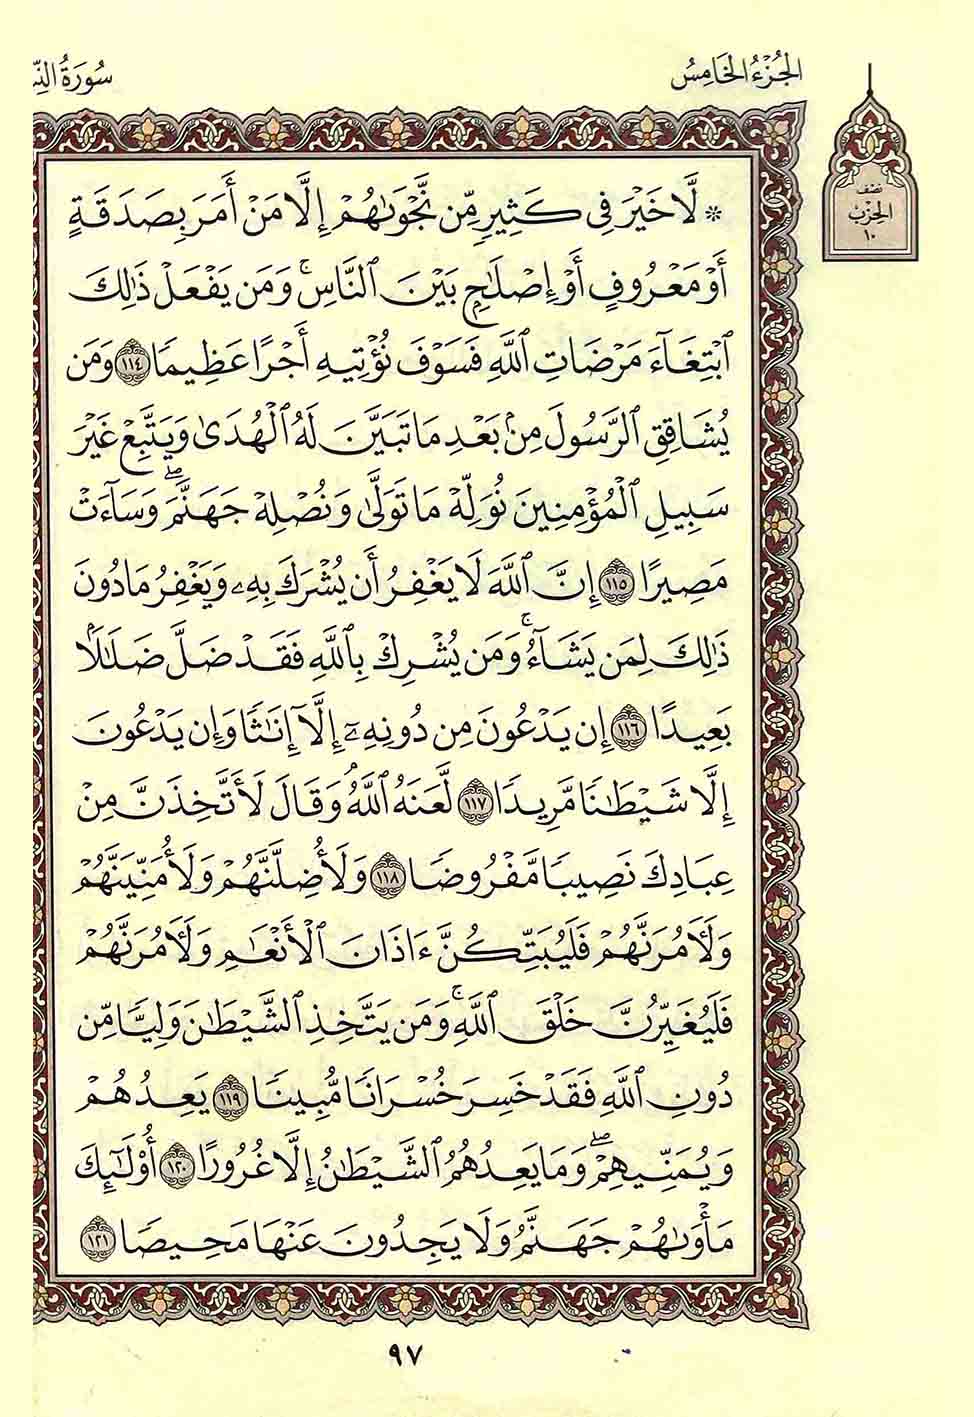 الجُزْءُ الخَامِسُ
سُورَةُ النِّ
نصف
الحزب
١٠
۞ لَّا خَيْرَ فِي كَثِيرٍ مِّن نَّجْوَىٰهُمْ إِلَّا مَنْ أَمَرَ بِصَدَقَةٍ
أَوْ مَعْرُوفٍ أَوْ إِصْلَٰحٍۭ بَيْنَ ٱلنَّاسِۚ وَمَن يَفْعَلْ ذَٰلِكَ
ٱبْتِغَآءَ مَرْضَاتِ ٱللَّهِ فَسَوْفَ نُؤْتِيهِ أَجْرًا عَظِيمًا ١١٤ وَمَن
يُشَاقِقِ ٱلرَّسُولَ مِنۢ بَعْدِ مَا تَبَيَّنَ لَهُ ٱلْهُدَىٰ وَيَتَّبِعْ غَيْرَ
سَبِيلِ ٱلْمُؤْمِنِينَ نُوَلِّهِۦ مَا تَوَلَّىٰ وَنُصْلِهِۦ جَهَنَّمَۖ وَسَآءَتْ
مَصِيرًا ١١٥ إِنَّ ٱللَّهَ لَا يَغْفِرُ أَن يُشْرَكَ بِهِۦ وَيَغْفِرُ مَا دُونَ
ذَٰلِكَ لِمَن يَشَآءُۚ وَمَن يُشْرِكْ بِٱللَّهِ فَقَدْ ضَلَّ ضَلَٰلًۢا
بَعِيدًا ١١٦ إِن يَدْعُونَ مِن دُونِهِۦٓ إِلَّآ إِنَٰثًا وَإِن يَدْعُونَ
إِلَّا شَيْطَٰنًا مَّرِيدًا ١١٧ لَّعَنَهُ ٱللَّهُۘ وَقَالَ لَأَتَّخِذَنَّ مِنْ
عِبَادِكَ نَصِيبًا مَّفْرُوضًا ١١٨ وَلَأُضِلَّنَّهُمْ وَلَأُمَنِّيَنَّهُمْ
وَلَـَٔامُرَنَّهُمْ فَلَيُبَتِّكُنَّ ءَاذَانَ ٱلْأَنْعَٰمِ وَلَـَٔامُرَنَّهُمْ
فَلَيُغَيِّرُنَّ خَلْقَ ٱللَّهِۚ وَمَن يَتَّخِذِ ٱلشَّيْطَٰنَ وَلِيًّا مِّن
دُونِ ٱللَّهِ فَقَدْ خَسِرَ خُسْرَانًا مُّبِينًا ١١٩ يَعِدُهُمْ
وَيُمَنِّيهِمْۖ وَمَا يَعِدُهُمُ ٱلشَّيْطَٰنُ إِلَّا غُرُورًا ١٢٠ أُو۟لَٰٓئِكَ
مَأْوَىٰهُمْ جَهَنَّمُ وَلَا يَجِدُونَ عَنْهَا مَحِيصًا ١٢١
٩٧